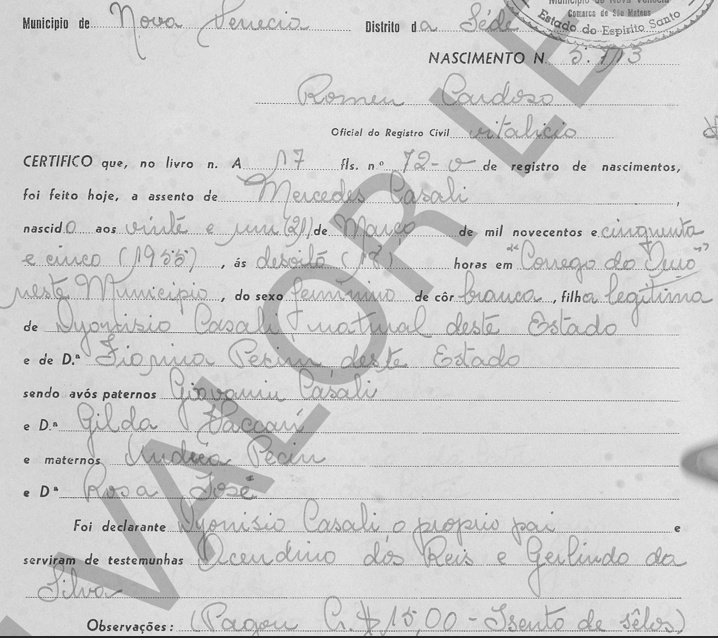 Municipio de Nova Venecia Distrito da Séde
Municipio de Nova Venecia
Comarca de São Mateus
Estado do Espirito Santo
NASCIMENTO N. 5.113
Romeu Cardoso
Oficial do Registro Civil vitalicio
CERTIFICO que, no livro n. A 17 fls. nº 72-v de registro de nascimentos,
foi feito hoje, a assento de Mercedes Casali,
nascido aos vinte e um (21) de Março de mil novecentos e cinquenta
e cinco (1955), ás desoito (18) horas em "Corrego do
neste Municipio, do sexo feminino de côr branca, filha legitima
de Dyonisio Casali natural deste Estado
e de D.ª Fiorina Pecin deste Estado
sendo avós paternos Giovanin Casali
e Dª Gilda Vaccari
e maternos Andrea Pecin
e Dª Rosa José
Foi declarante Dyonisio Casali o proprio pai e
serviram de testemunhas dos Reis e Gerlindo da
Silva
Observações: (Pagou Cr.$ 15,00 - Isento de sêlos)
VALOR LE